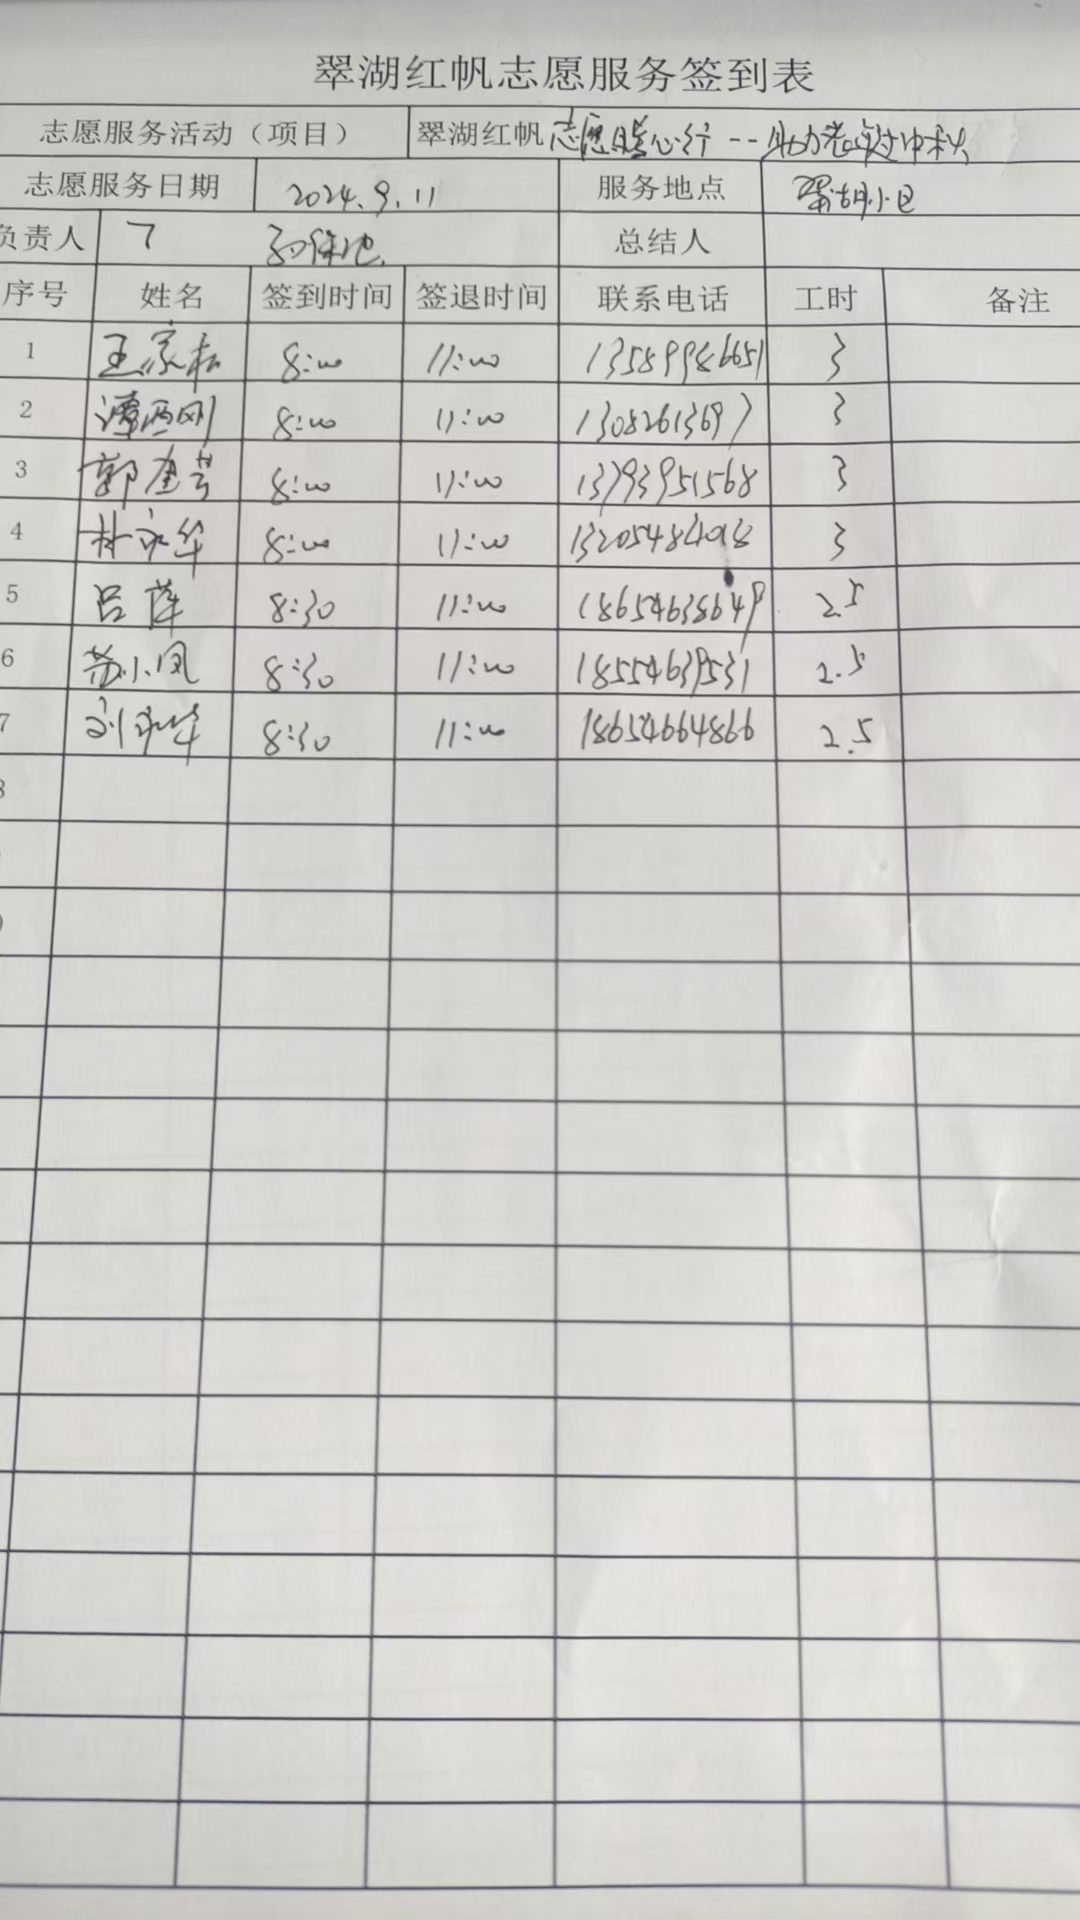 翠湖红帆志愿服务签到表
志愿服务活动（项目） 翠湖红帆志愿暖心行--助力老年过中秋
志愿服务日期 2024.9.11 服务地点 翠湖小区
负责人 总结人
序号 姓名 签到时间 签退时间 联系电话 工时 备注
1 王家 8:00 11:00 13589986651 3
2 谭西刚 8:00 11:00 13082613697 3
3 郭 8:00 11:00 13793951568 3
4 林永华 8:00 11:00 3
5 吕萍 8:30 11:00 18654638649 2.5
6 苏小凤 8:30 11:00 18554639531 2.5
7 刘 8:30 11:00 18654664866 2.5